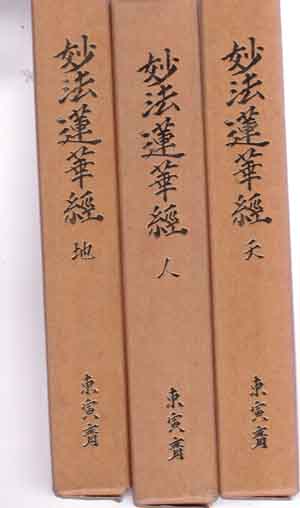 妙法蓮華經 天
東寅齋
妙法蓮華經 人
東寅齋
妙法蓮華經 地
東寅齋